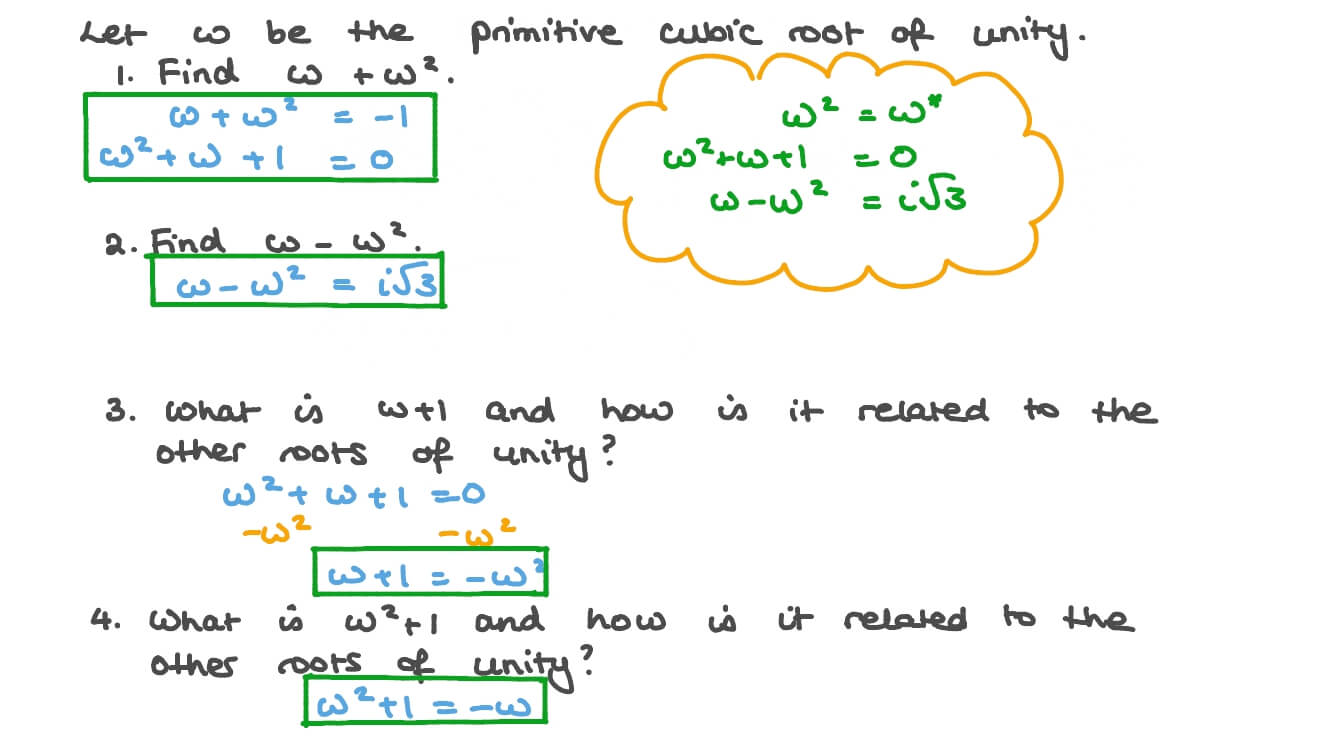 Let ω be the primitive cubic root of unity.
1. Find ω + ω².
ω + ω² = -1
ω² + ω + 1 = 0
ω² = ω*
ω² + ω + 1 = 0
ω - ω² = i√3
2. Find ω - ω².
ω - ω² = i√3
3. What is ω+1 and how is it related to the
other roots of unity?
ω² + ω + 1 = 0
-ω² -ω²
ω + 1 = -ω²
4. What is ω²+1 and how is it related to the
other roots of unity?
ω² + 1 = -ω